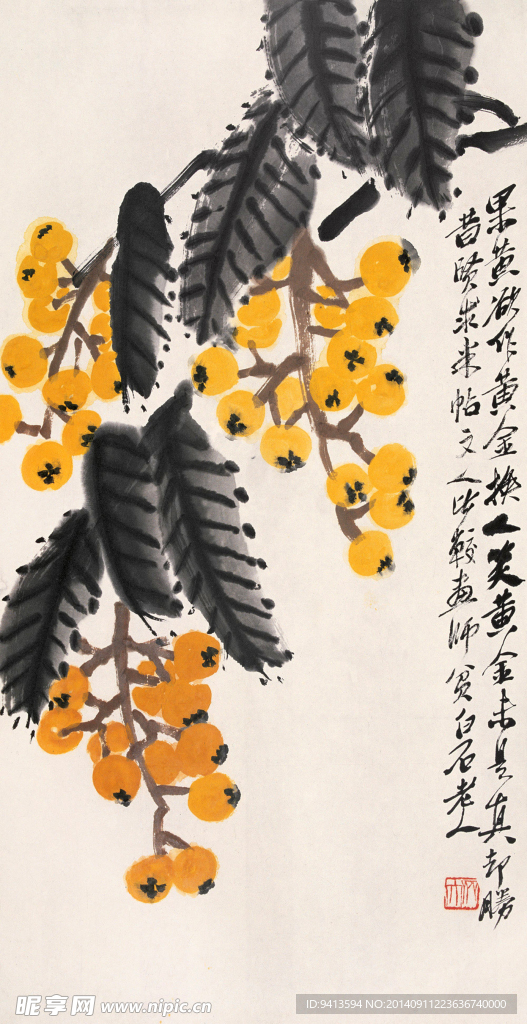 果黄欲作黄金换人笑黄金未是真却勝
昔賢求米帖文人比較畫师貧白石老人
昵享网 www.nipic.cn
ID:9413594 NO:20140911223636740000